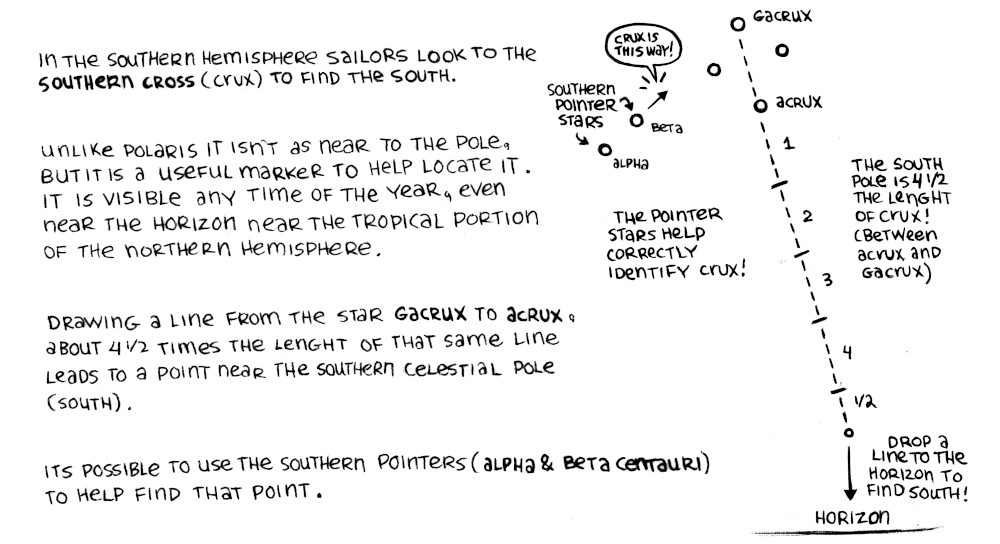 IN THE SOUTHERN HEMISPHERE SAILORS LOOK TO THE
SOUTHERN CROSS (CRUX) TO FIND THE SOUTH.
UNLIKE POLARIS IT ISN'T AS NEAR TO THE POLE,
BUT IT IS A USEFUL MARKER TO HELP LOCATE IT.
IT IS VISIBLE ANY TIME OF THE YEAR, EVEN
NEAR THE HORIZON NEAR THE TROPICAL PORTION
OF THE NORTHERN HEMISPHERE.
DRAWING A LINE FROM THE STAR GACRUX TO ACRUX,
ABOUT 4 1/2 TIMES THE LENGHT OF THAT SAME LINE
LEADS TO A POINT NEAR THE SOUTHERN CELESTIAL POLE
(SOUTH).
ITS POSSIBLE TO USE THE SOUTHERN POINTERS (ALPHA & BETA CENTAURI)
TO HELP FIND THAT POINT.
GACRUX
CRUX IS
THIS WAY!
SOUTHERN
POINTER
STARS
BETA
ALPHA
ACRUX
THE POINTER
STARS HELP
CORRECTLY
IDENTIFY CRUX!
1
2
3
4
1/2
THE SOUTH
POLE IS 4 1/2
THE LENGHT
OF CRUX!
(BETWEEN
ACRUX AND
GACRUX)
DROP A
LINE TO THE
HORIZON TO
FIND SOUTH!
HORIZON